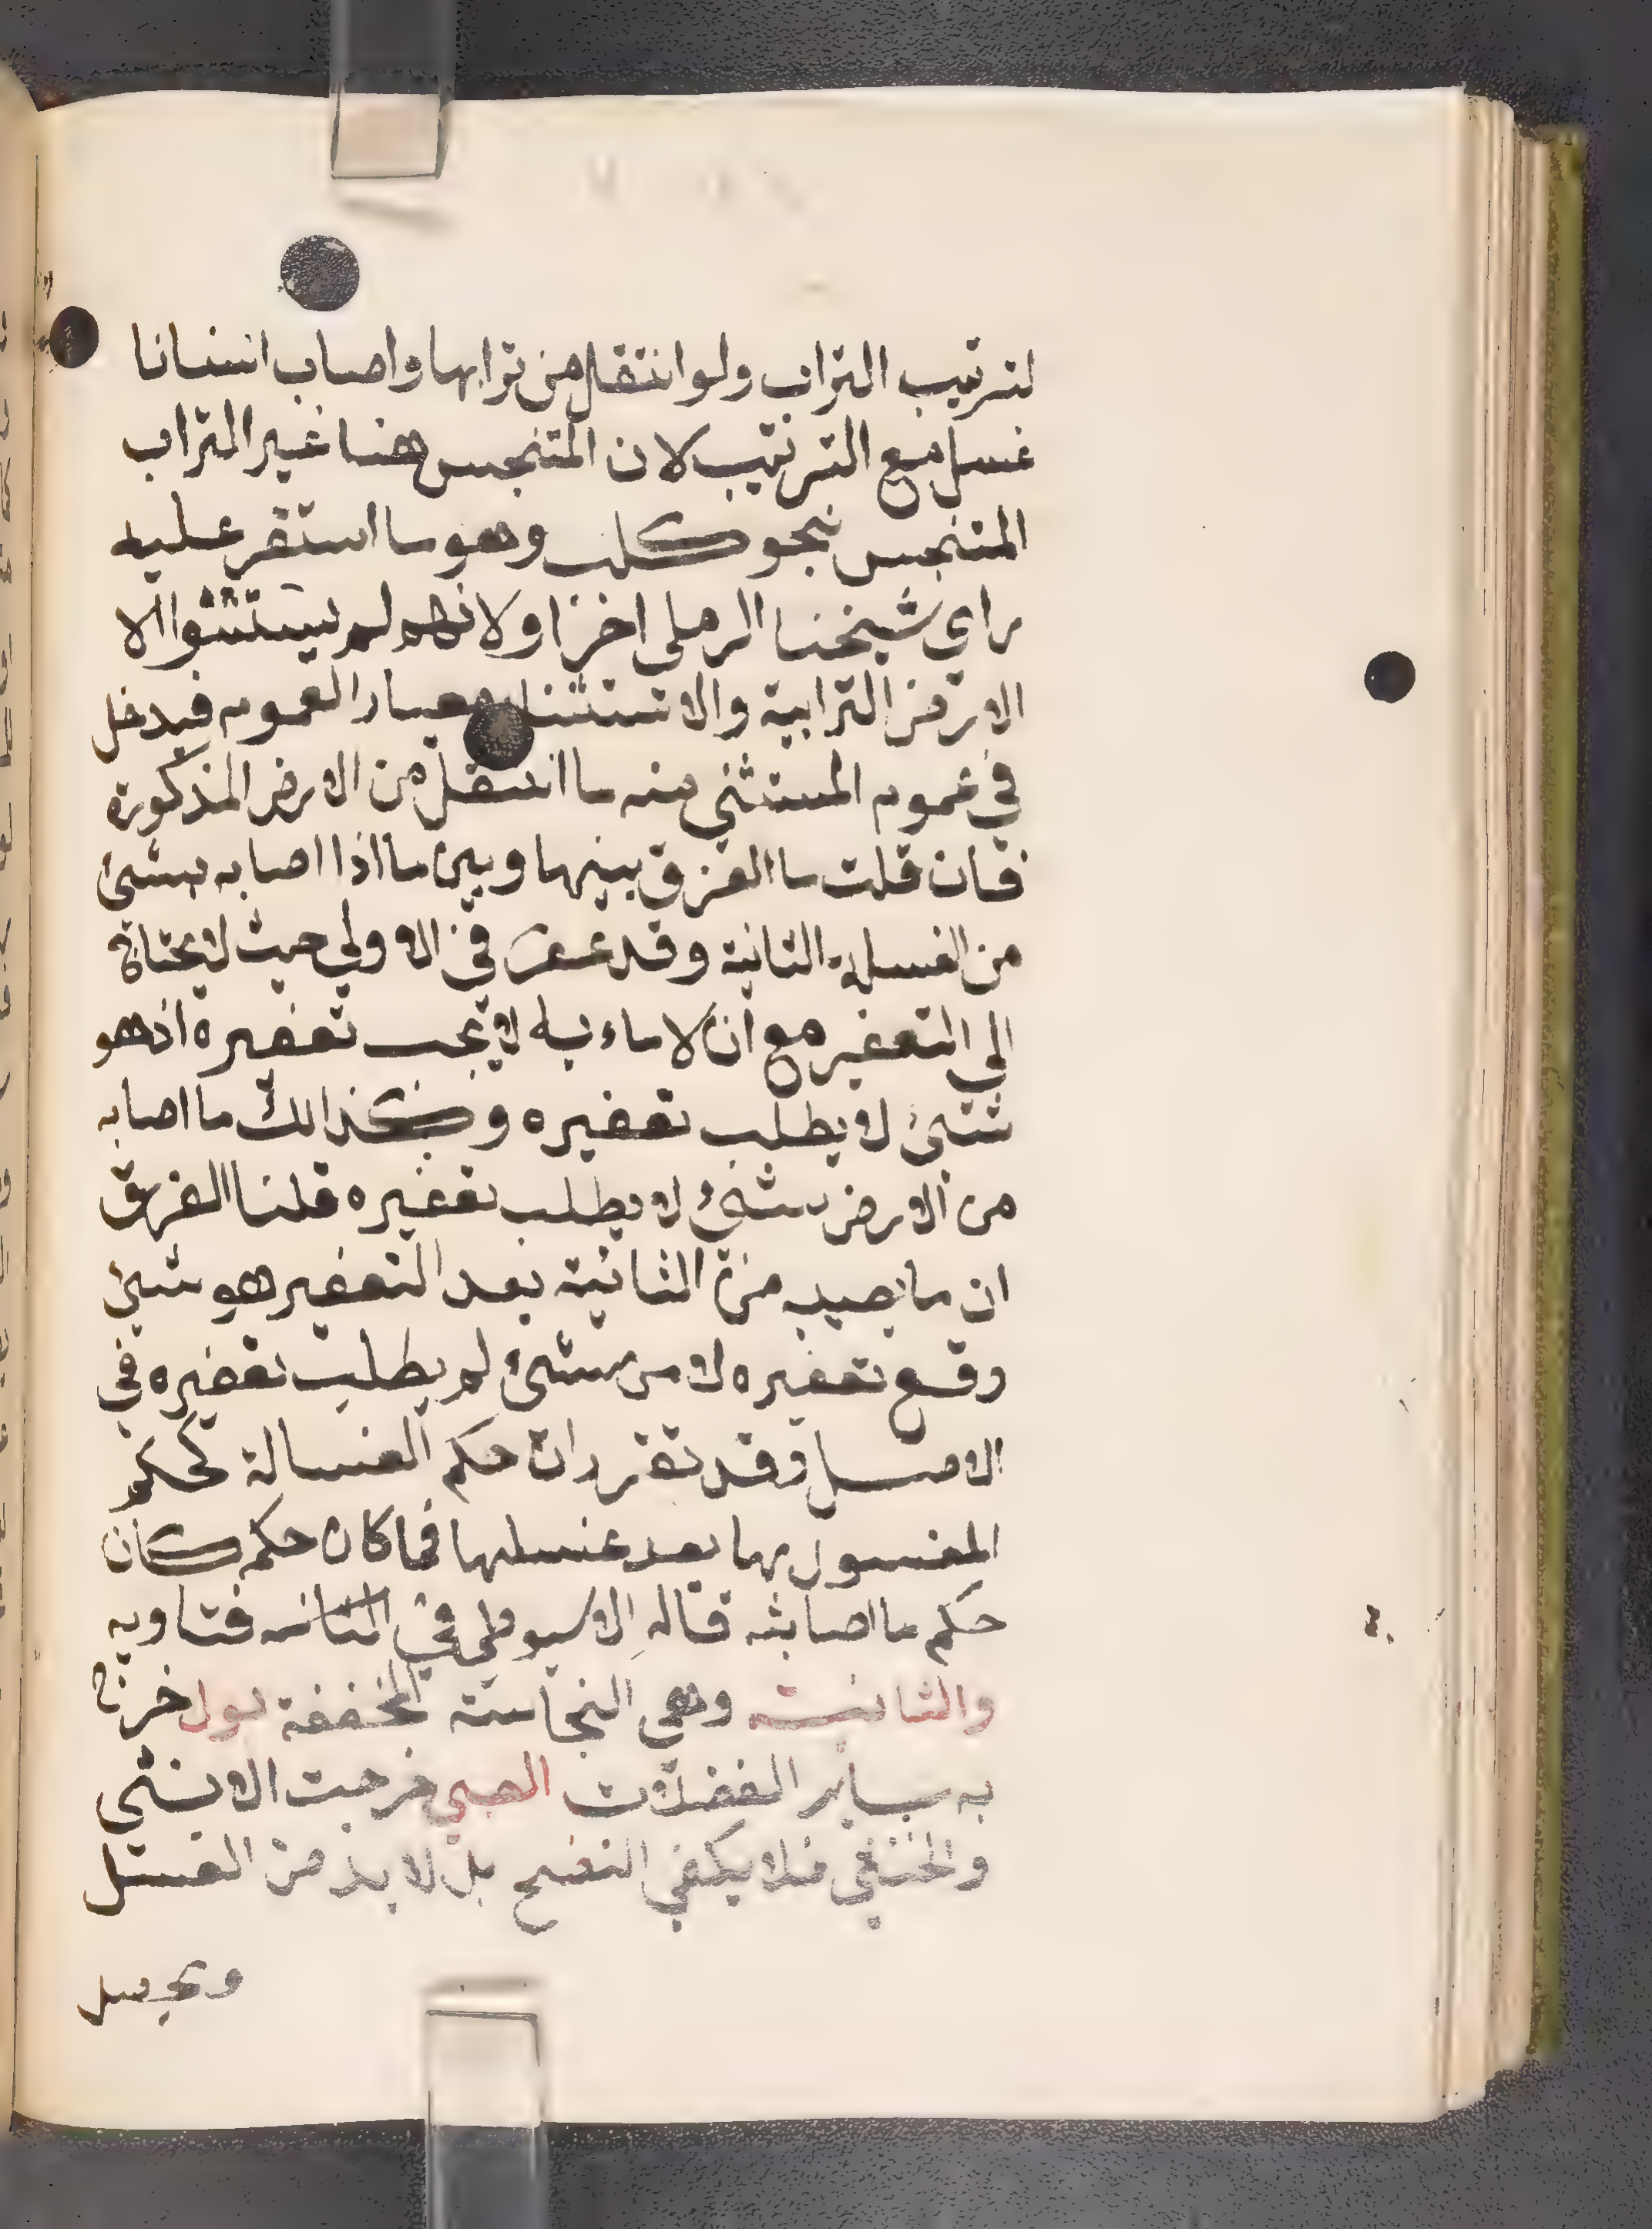 لترتيب التراب ولو انتقل من ترابها واصاب انسانا
غسل مع الترتيب لان المتنجس هنا غير التراب
المتنجس نجو كلب وهو ما استقر عليه
راي شيخنا الرملي اخرا ولانهم لم يستثنوا الا
الارض الترابية والاستثناء معيار العموم فيدخل
في عموم المستثني منه ما انتقل من الارض المذكورة
فان قلت ما الفرق بينها وبين ما اذا اصابه شئ
من الغسلة الثانية وقد عفر في الاولي حيث لا يحتاج
الي التعفير مع ان لا ماء به لا يجب تعفيره اذ هو
شئ لا يطلب تعفيره وكذالك ما اصابه
من الارض شئ لا يطلب تعفيره قلنا الفرق
ان ما يصيب من الثانية بعد التعفير هو شئ
وقع تعفيره لا من شئ لم يطلب تعفيره في
الاصل وقد تقرر ان حكم الغسالة كحكم
المغسول بها بعد غسلها فما كان حكم كان
حكم ما اصابته قاله الاسيوطي في فتاويه
والثانية وهي النجاسة المخففة بول خرج
به ساير الفضلات الصبي خرجت الانثي
والخنثي فلا يكفي النضح بل لا بد من الغسل
ويحصل